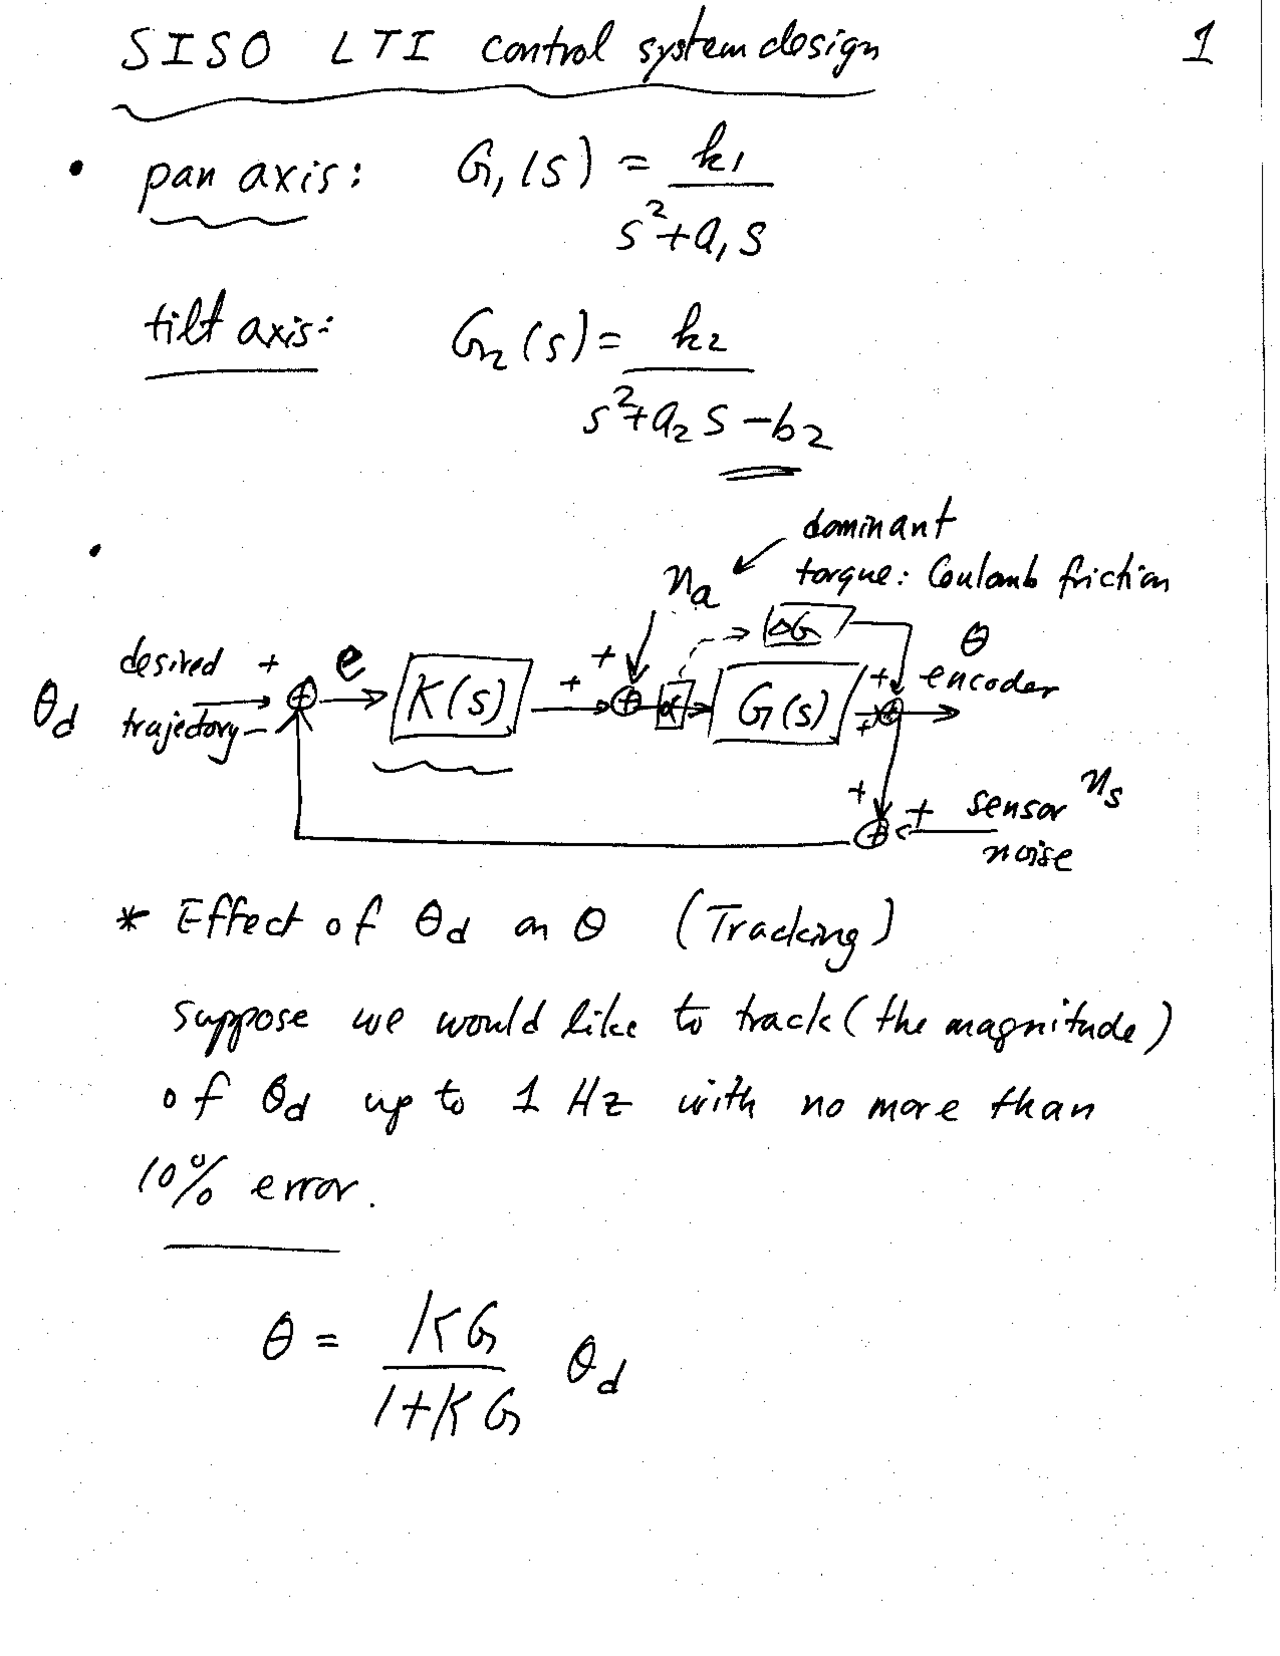 SISO LTI control system design 1
• pan axis: G₁(s) = k₁ / (s² + a₁s)
tilt axis: G₂(s) = k₂ / (s² + a₂s - b₂)
•
dominant
torque: Coulomb friction
nₐ
ΔG
θ
encoder
desired + e
θd trajectory -
K(s)
+ +
α
G(s)
+ +
+ + sensor nₛ
noise
* Effect of θd on θ (Tracking)
suppose we would like to track (the magnitude)
of θd up to 1 Hz with no more than
10% error.
θ = KG / (1+KG) θd